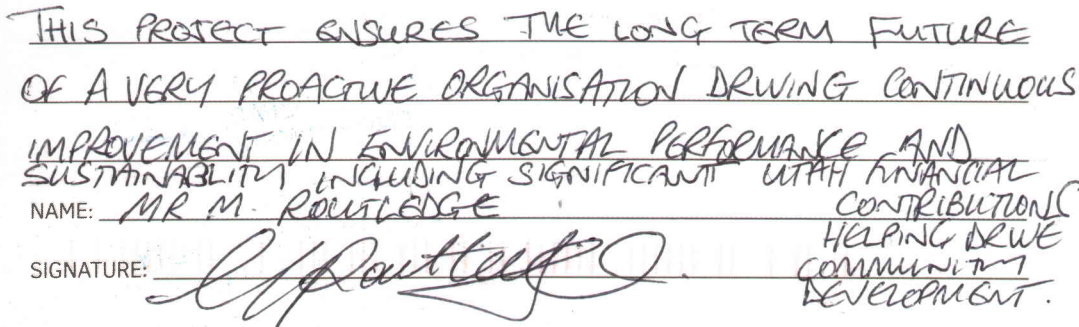 THIS PROJECT ENSURES THE LONG TERM FUTURE
OF A VERY PROACTIVE ORGANISATION DRIVING CONTINUOUS
IMPROVEMENT IN ENVIRONMENTAL PERFORMANCE AND
SUSTAINABLITY INCLUDING SIGNIFICANT UTAH FINANCIAL
NAME: MR M. ROUTLEDGE
CONTRIBUTIONS
HELPING DRIVE
COMMUNITY
DEVELOPMENT.
SIGNATURE: MRoutledge